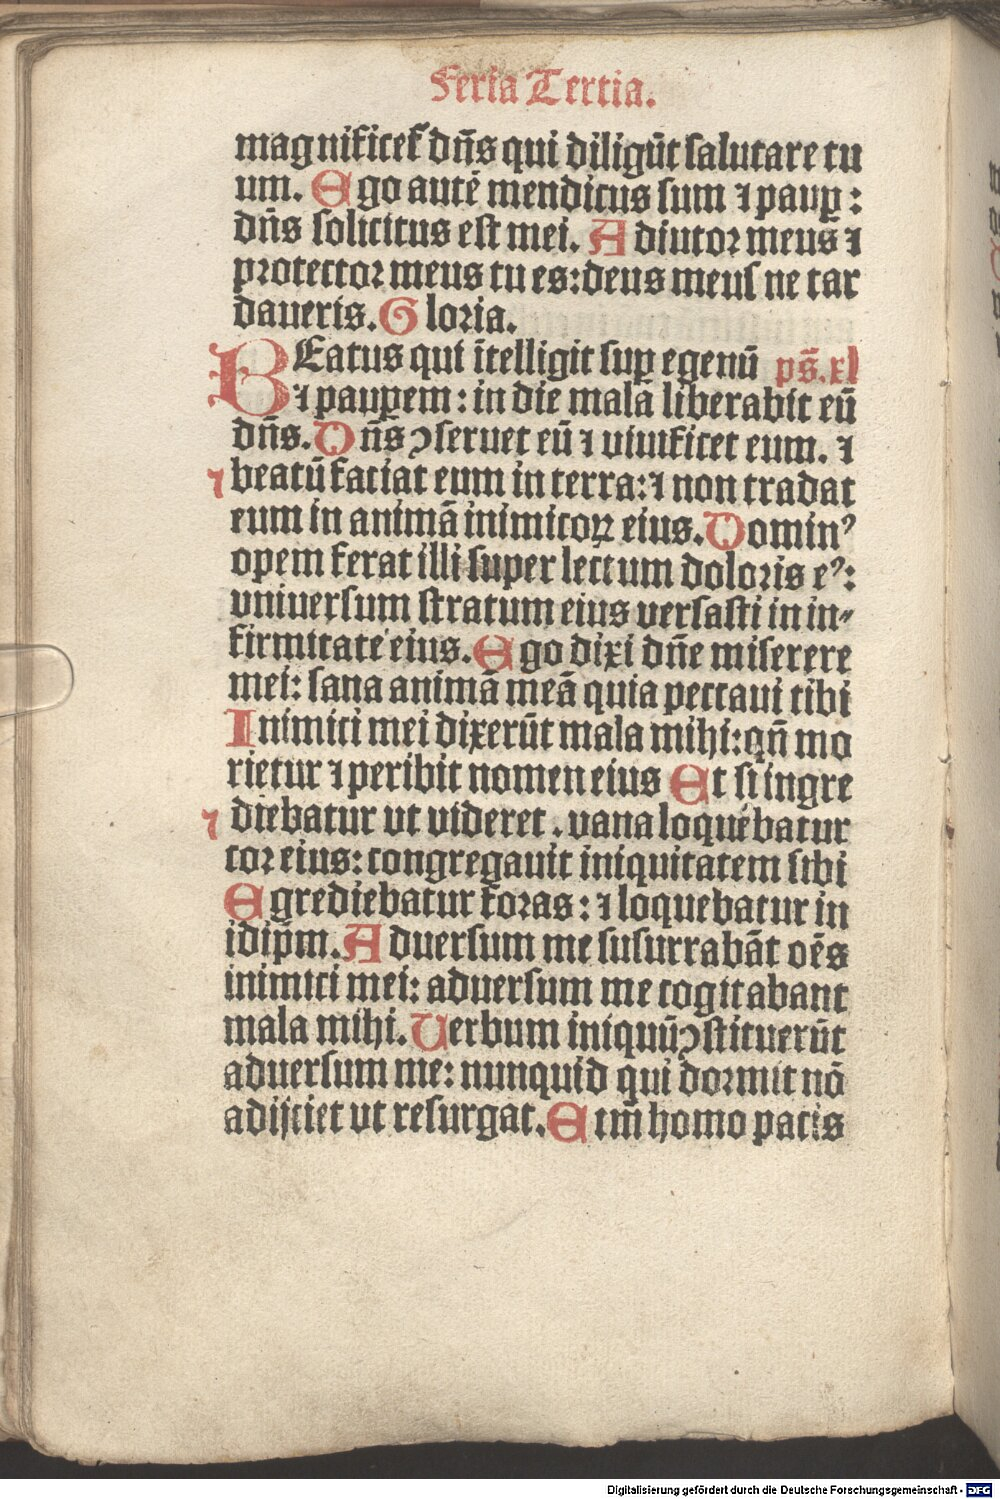 Feria Tertia.
magnificet᷑ dñs qui diligūt salutare tu
um. Ego autē mendicus sum ⁊ paup̱:
dñs solicitus est mei. Adiutor meus ⁊
protector meus tu es: deus meus ne tar
daueris. Gloria.
BEatus qui ītelligit sup̱ egenū ps̄. xl
⁊ paup̱em: in die mala liberabit eū
dñs. Dñs ↄseruet eū ⁊ uiuificet eum. ⁊
beatū faciat eum in terra: ⁊ non tradat
eum in animā inimicoꝝ eius. Dominꝰ
opem ferat illi super lectum doloris eꝰ:
vniuersum stratum eius versasti in in-
firmitate eius. Ego dixi dñe miserere
mei: sana animā meā quia peccaui tibi
Inimici mei dixerūt mala mihi: qñ mo
rietur ⁊ peribit nomen eius Et si ingre
diebatur ut videret. vana loquebatur
cor eius: congregauit iniquitatem sibi
Egrediebatur foras: ⁊ loquebatur in
idip̄m. Aduersum me susurrabāt oēs
inimici mei: aduersum me cogitabant
mala mihi. Verbum iniquū ↄstituerūt
aduersum me: nunquid qui dormit nō
adijciet ut resurgat. Etim̄ homo pacis
Digitalisierung gefördert durch die Deutsche Forschungsgemeinschaft - DFG